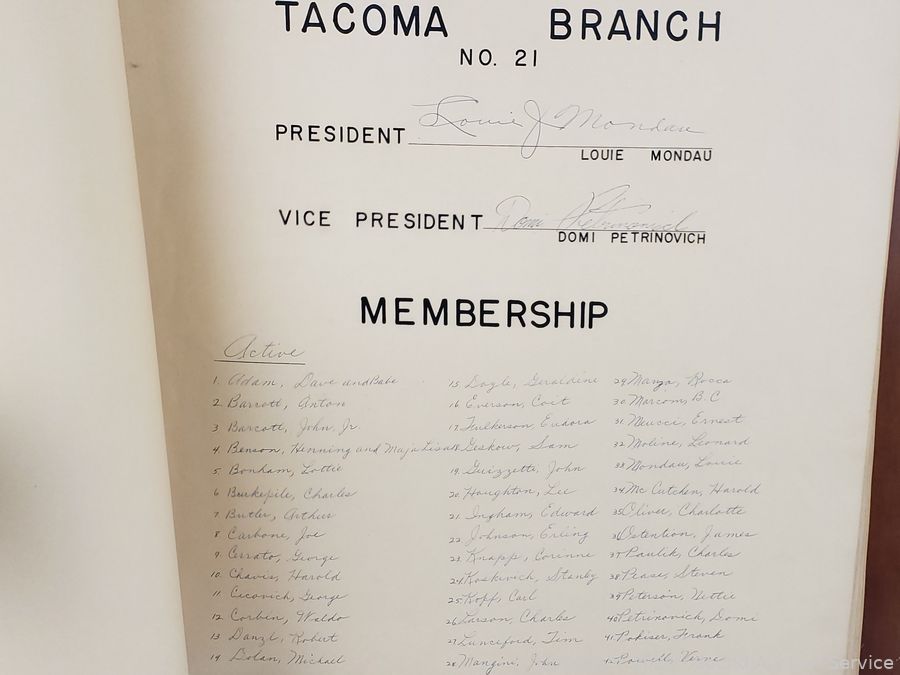 TACOMA BRANCH
NO. 21
PRESIDENT Louie J Mondau
LOUIE MONDAU
VICE PRESIDENT Domi Petrinovich
DOMI PETRINOVICH
MEMBERSHIP
Active
1. Adam, Dave and Babe
2. Barcott, Anton
3 Barcott, John Jr.
4. Benson, Henning and Maja Lisa
5. Bonham, Lottie
6 Burkepile, Charles
7. Butler, Arthur
8 Carbone, Joe
9. Cerrato, George
10. Chavis, Harold
11. Cecovich, George
12. Corbin, Waldo
13 Danzl, Robert
14. Dolan, Michael
15 Dogle, Geraldine
16 Everson, Coit
17 Fulkerson Eudora
18 Geskow, Sam
19. Guizzette, John
20 Houghton, Lee
21. Ingham, Edward
22 Johnson, Erling
23 Knapp, Corinne
24 Koskevich, Stanley
25 Kopp, Carl
26 Larson, Charles
27 Lunceford, Tim
28 Mangini, John
29 Manza, Rocco
30 Marcom, B.C
31 Meucci, Ernest
32 Moline, Leonard
33 Mondau, Louie
34 Mc Cutchen, Harold
35 Oliver, Charlotte
36 Ostention, James
37 Paulik, Charles
38 Pease, Steven
39 Peterson, Nettie
40 Petrinovich, Domi
41. Pokiser, Frank
42 Powell, Verne
Service